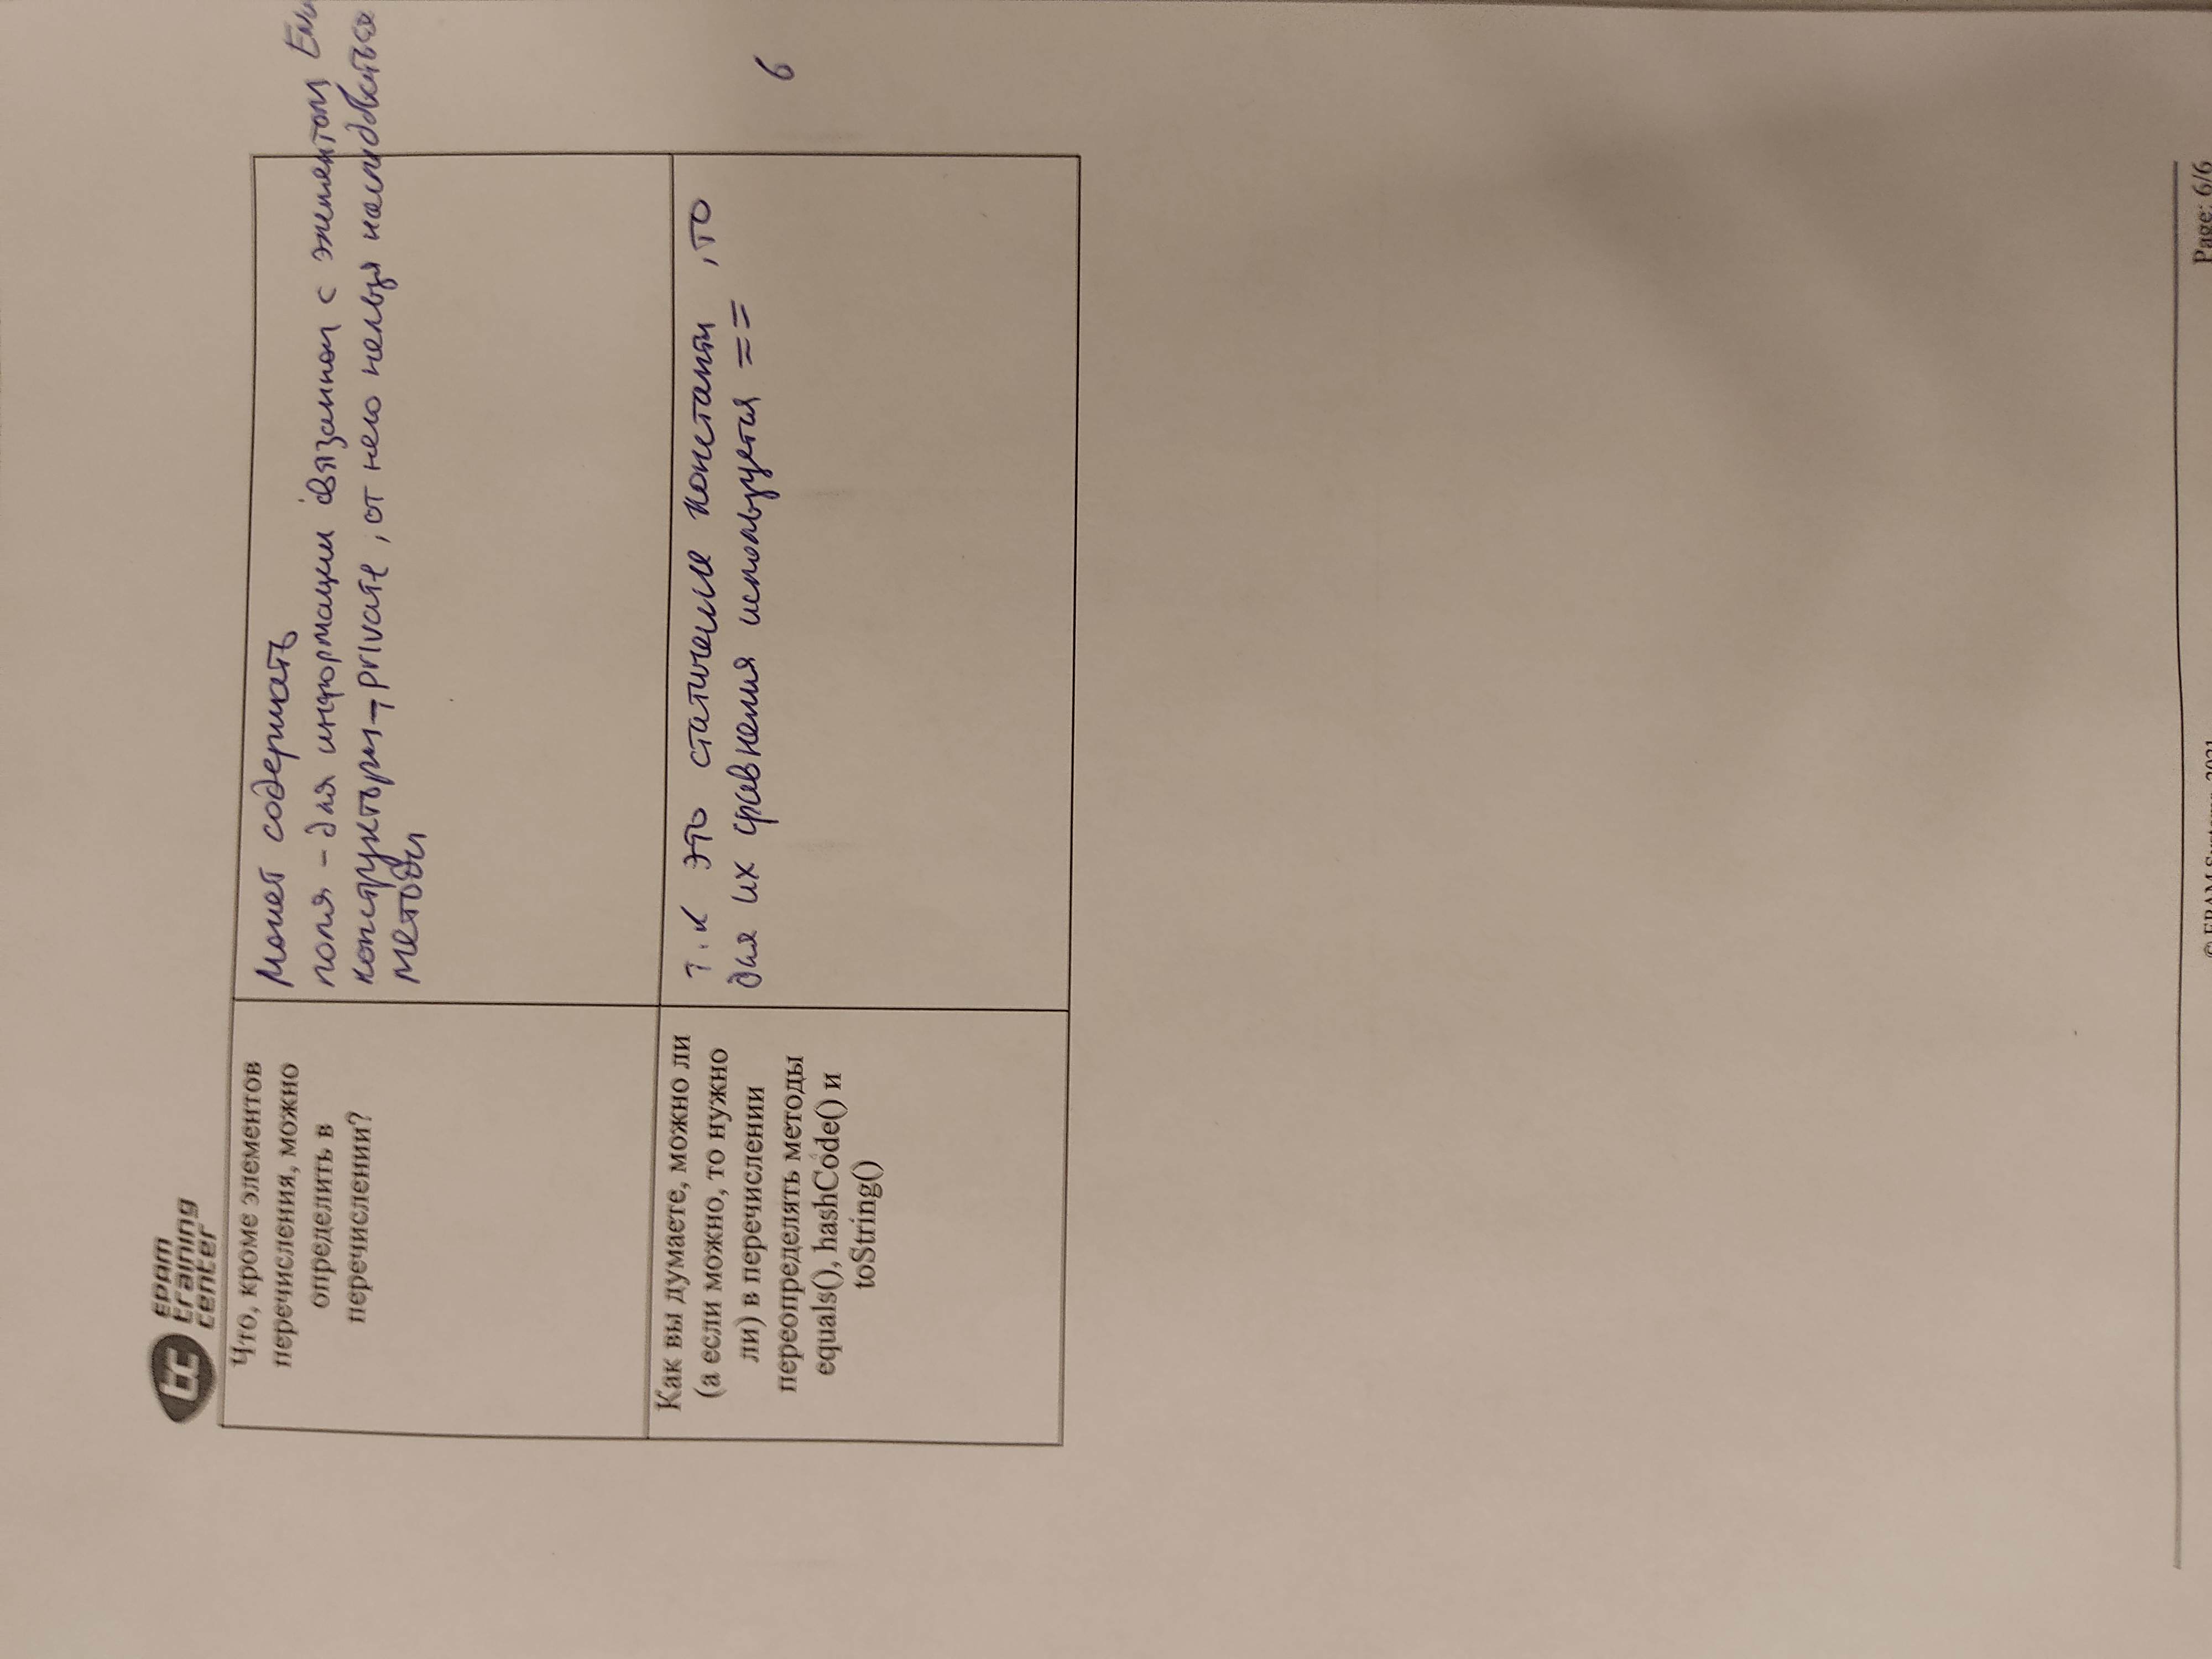 tc
EPAM
training
center
Что, кроме элементов
перечисления, можно
определить в
перечислении?
Может содержать
поля - для информации связанной с элементом
конструкторы - private, от него нельзя наследоваться
методы
Как вы думаете, можно ли
(а если можно, то нужно
ли) в перечислении
переопределять методы
equals(), hashCode() и
toString()
т.к это статические константы, то
для их сравнения используется ==
6
© EPAM Systems, 2021
Page: 6/6